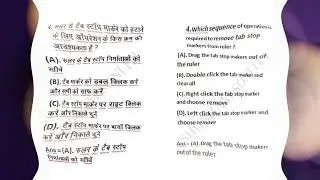 4. रुलर से टैब स्टॉप मार्कर को हटाने
के लिए ऑपरेशन के किस क्रम की
आवश्यकता है ?
(A). रुलर के टैब स्टॉप निर्माताओं को
खींचें
(B). टैब मार्कर को डबल क्लिक करें
और सभी को साफ़ करें
(C). टैब स्टॉप मार्कर पर राइट क्लिक
करें और निकालें चुनें
(D). टैब स्टॉप मार्कर पर बायाँ क्लिक
करें और निकालें चुनें
Ans = (A). रुलर के टैब स्टॉप
निर्माताओं को खींचें
4. Which sequence of operation is
required to remove tab stop
markers from ruler ?
(A). Drag the tab stop makers out of
the ruler
(B). Double click the tab marker and
clear all
(C). Right click the tab stop marker
and choose remove
(D). Left click the tab stop marker and
choose remove
Ans = (A). Drag the tab stop makers
out of the ruler